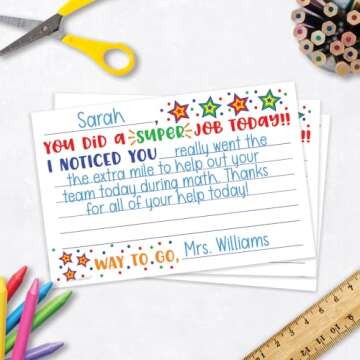 Sarah
YOU DID A SUPER JOB TODAY!!
I NOTICED YOU really went the
the extra mile to help out your
team today during math. Thanks
for all of your help today!
WAY TO GO, Mrs. Williams